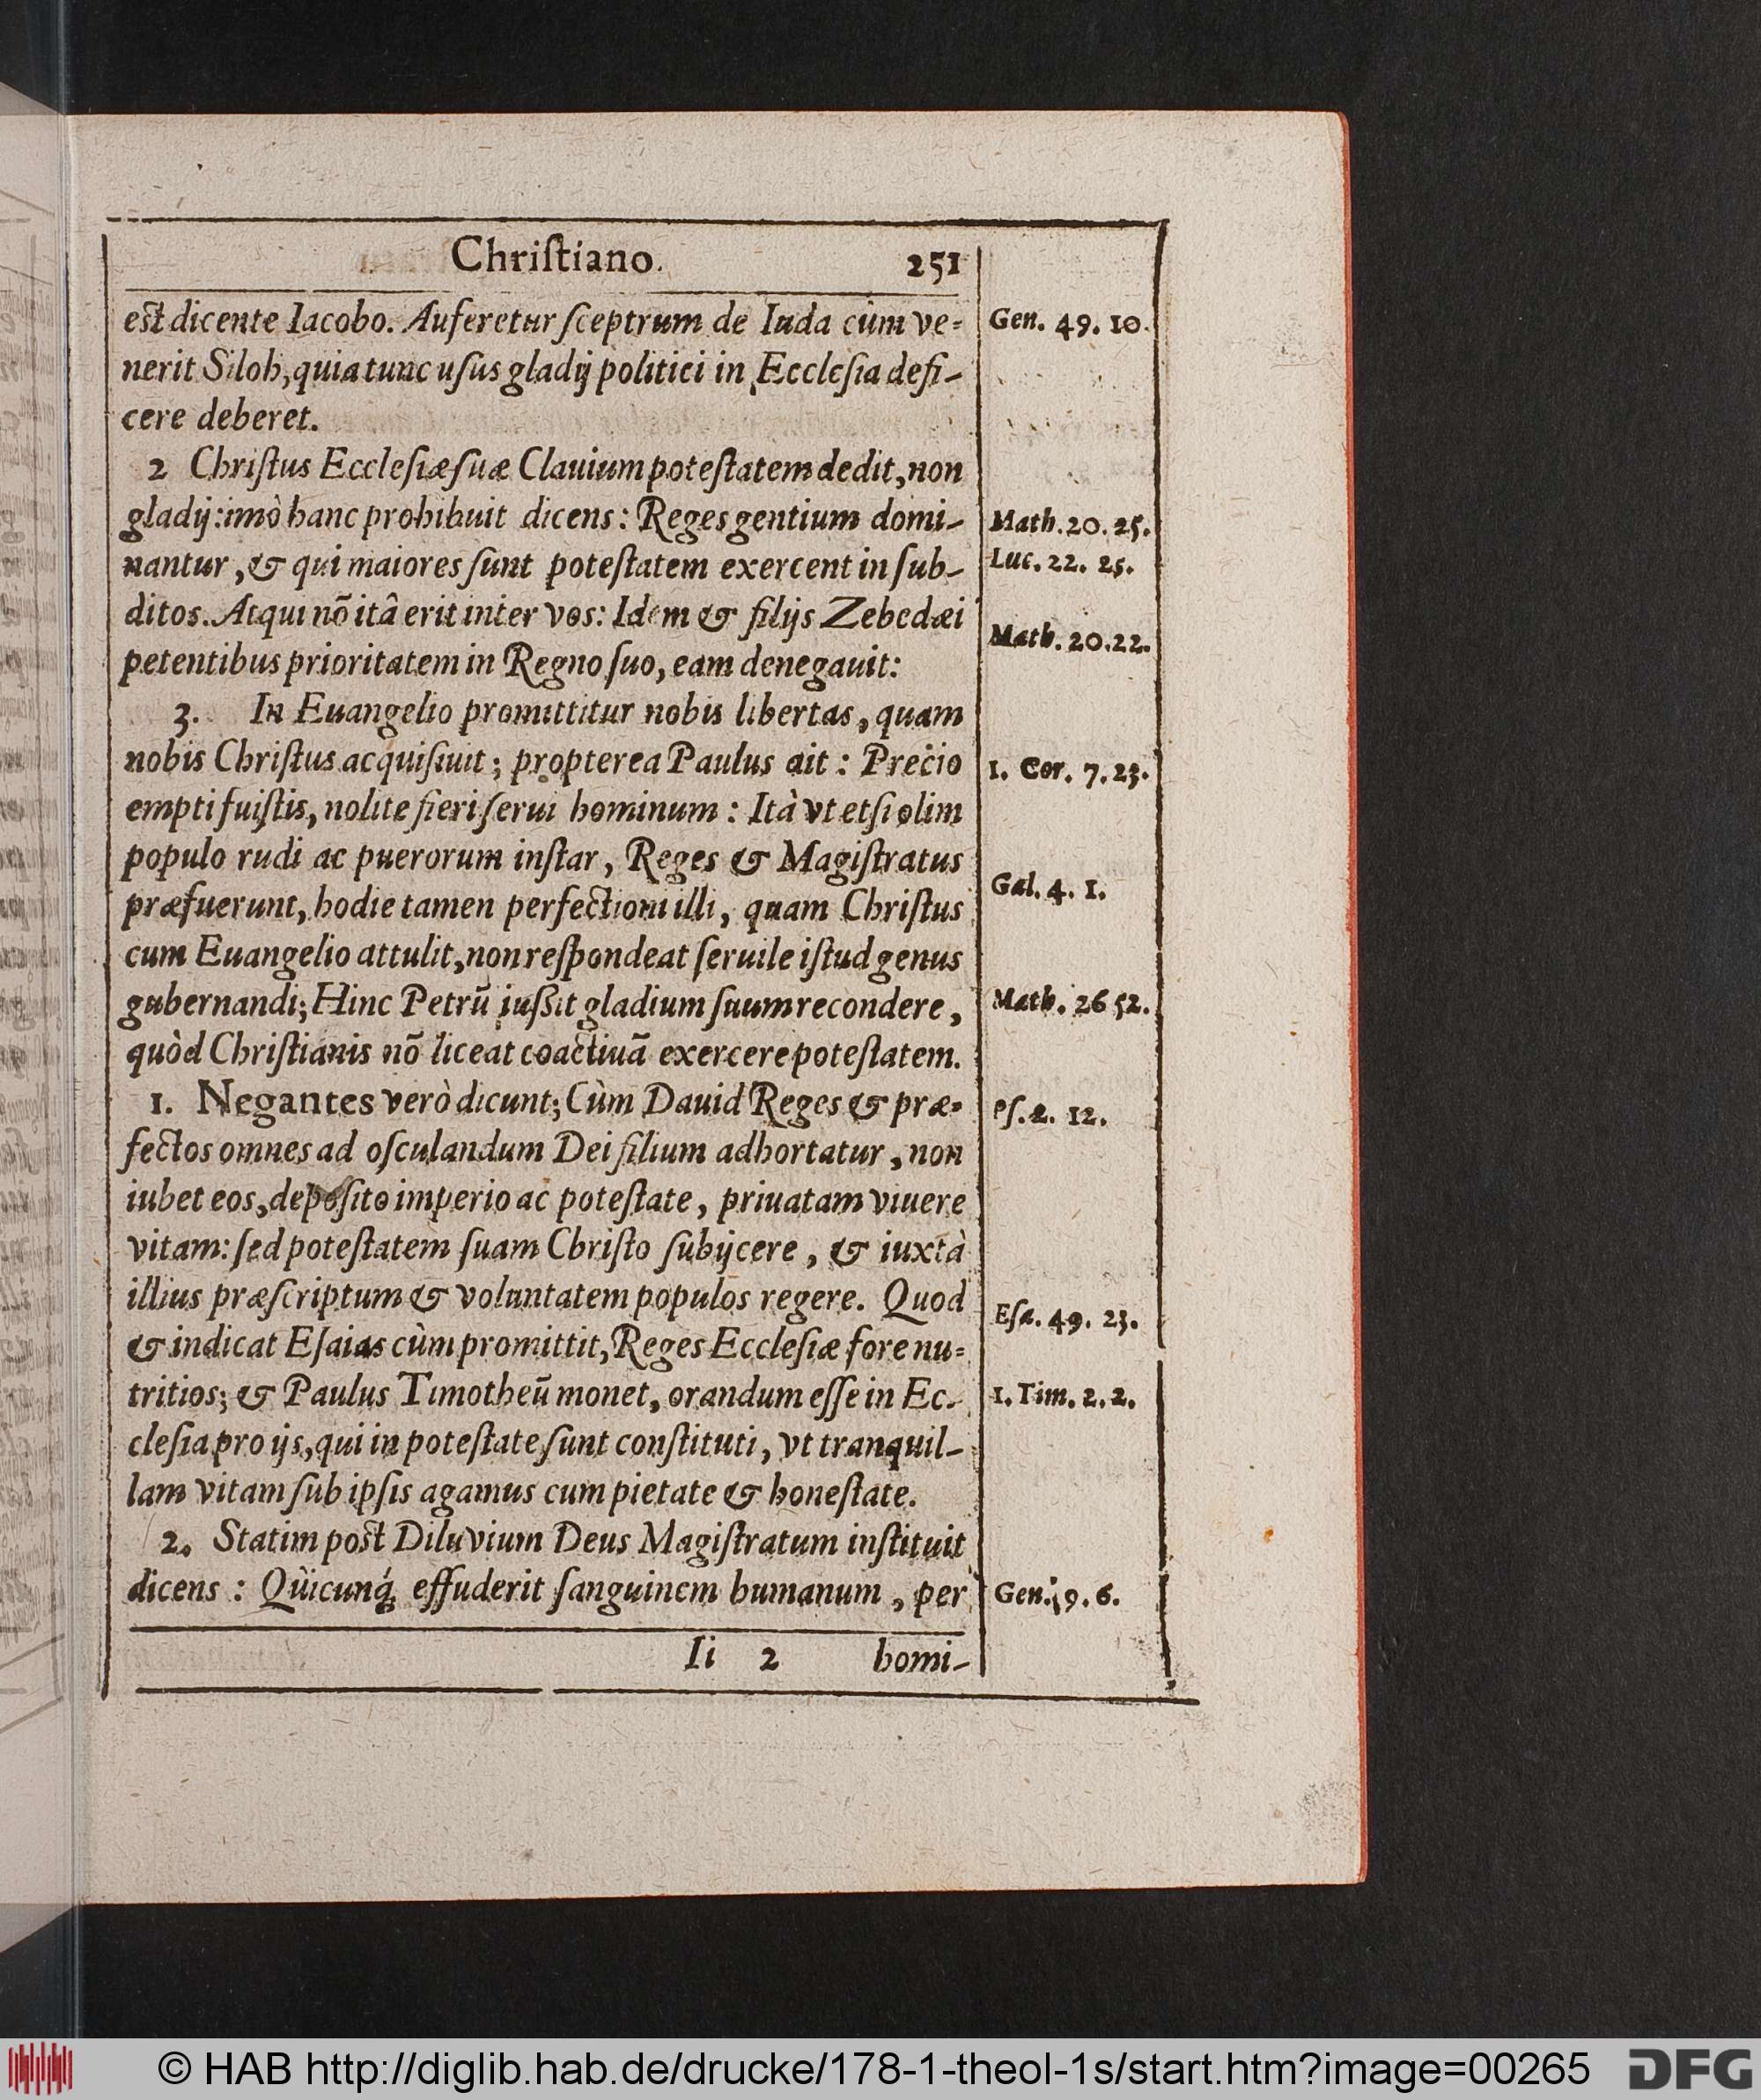 Chriſtiano. 251
eſt dicente Iacobo. Auferetur ſceptrum de Iuda cùm ve-
nerit Siloh, quia tunc uſus gladij politici in Eccleſia defi-
cere deberet.
Gen. 49. 10.
2 Chriſtus Eccleſiæ ſuæ Clauium poteſtatem dedit, non
gladij: imò hanc prohibuit dicens: Reges gentium domi-
nantur, & qui maiores ſunt poteſtatem exercent in ſub-
ditos. Atqui nõ itâ erit inter vos: Idem & filijs Zebedæi
petentibus prioritatem in Regno ſuo, eam denegauit:
Math. 20. 25.
Luc. 22. 25.
Math. 20. 22.
3. In Euangelio promittitur nobis libertas, quam
nobis Chriſtus acquiſiuit; propterea Paulus ait: Precio
empti fuiſtis, nolite fieri ſerui hominum: Ità vt etſi olim
populo rudi ac puerorum inſtar, Reges & Magiſtratus
præfuerunt, hodie tamen perfectioni illi, quam Chriſtus
cum Euangelio attulit, non reſpondeat ſeruile iſtud genus
gubernandi; Hinc Petrũ iuſsit gladium ſuum recondere,
quòd Chriſtianis nõ liceat coactiuã exercere poteſtatem.
1. Cor. 7. 23.
Gal. 4. 1.
Math. 26 52.
1. Negantes verò dicunt; Cùm Dauid Reges & præ-
fectos omnes ad oſculandum Dei filium adhortatur, non
iubet eos, depoſito imperio ac poteſtate, priuatam viuere
vitam: ſed poteſtatem ſuam Chriſto ſubijcere, & iuxtà
illius præſcriptum & voluntatem populos regere. Quod
& indicat Eſaias cùm promittit, Reges Eccleſiæ fore nu-
tritios; & Paulus Timotheũ monet, orandum eſſe in Ec-
cleſia pro ijs, qui in poteſtate ſunt conſtituti, vt tranquil-
lam vitam ſub ipſis agamus cum pietate & honeſtate.
Pſ. 2. 12.
Eſa. 49. 23.
1. Tim. 2. 2.
2. Statim poſt Diluvium Deus Magiſtratum inſtituit
dicens: Quicunq́; effuderit ſanguinem humanum, per
Gen. 9. 6.
Ii 2 homi-
© HAB http://diglib.hab.de/drucke/178-1-theol-1s/start.htm?image=00265
DFG